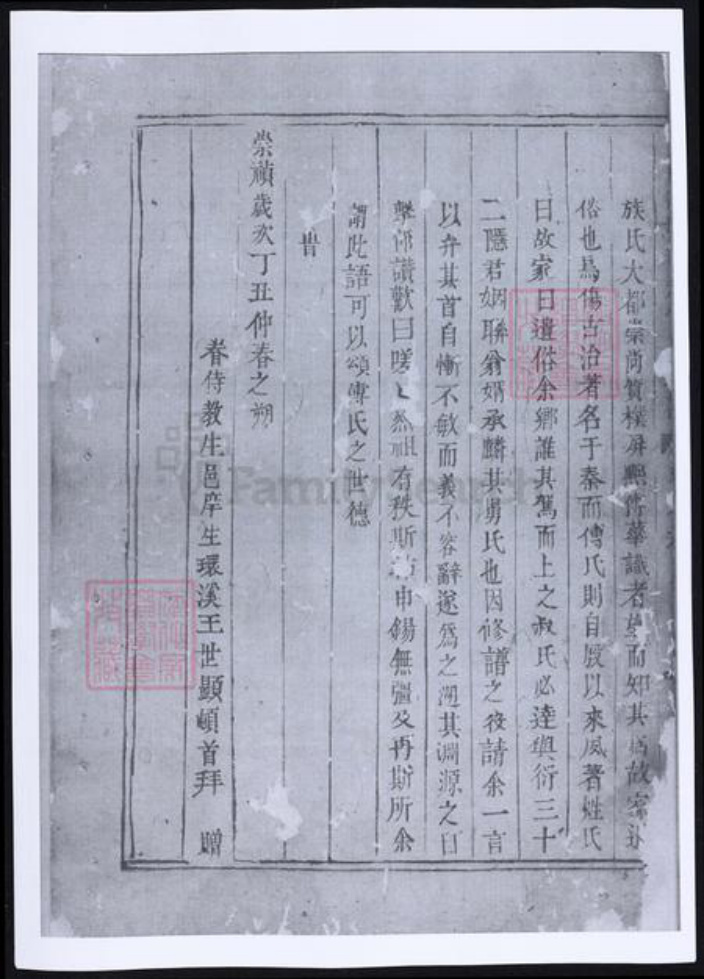 族氏大都崇尚質樸屏熙華識者望而知其為故家
俗也烏傷古治著名于秦而傅氏則自殷以來夙著姓氏
曰故家曰遺俗余鄉誰其駕而上之叔氏必達與衍三十
二隱君姻聯翁婿承麟其甥氏也因修譜之役請余一言
以弁其首自慚不敏而義不容辭遂為之遡其淵源之自
擊節讚歎曰嗟嗟烈祖有秩斯祜申錫無疆及爾斯所余
謂此語可以頌傅氏之世德
旹
崇禎歲次丁丑仲春之朔
眷侍教生邑庠生環溪王世顯頓首拜 贈
FamilySearch